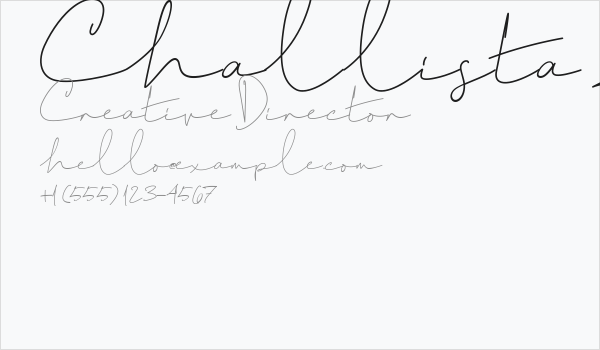 Challista
Creative Director
hello@example.com
+1 (555) 123-4567